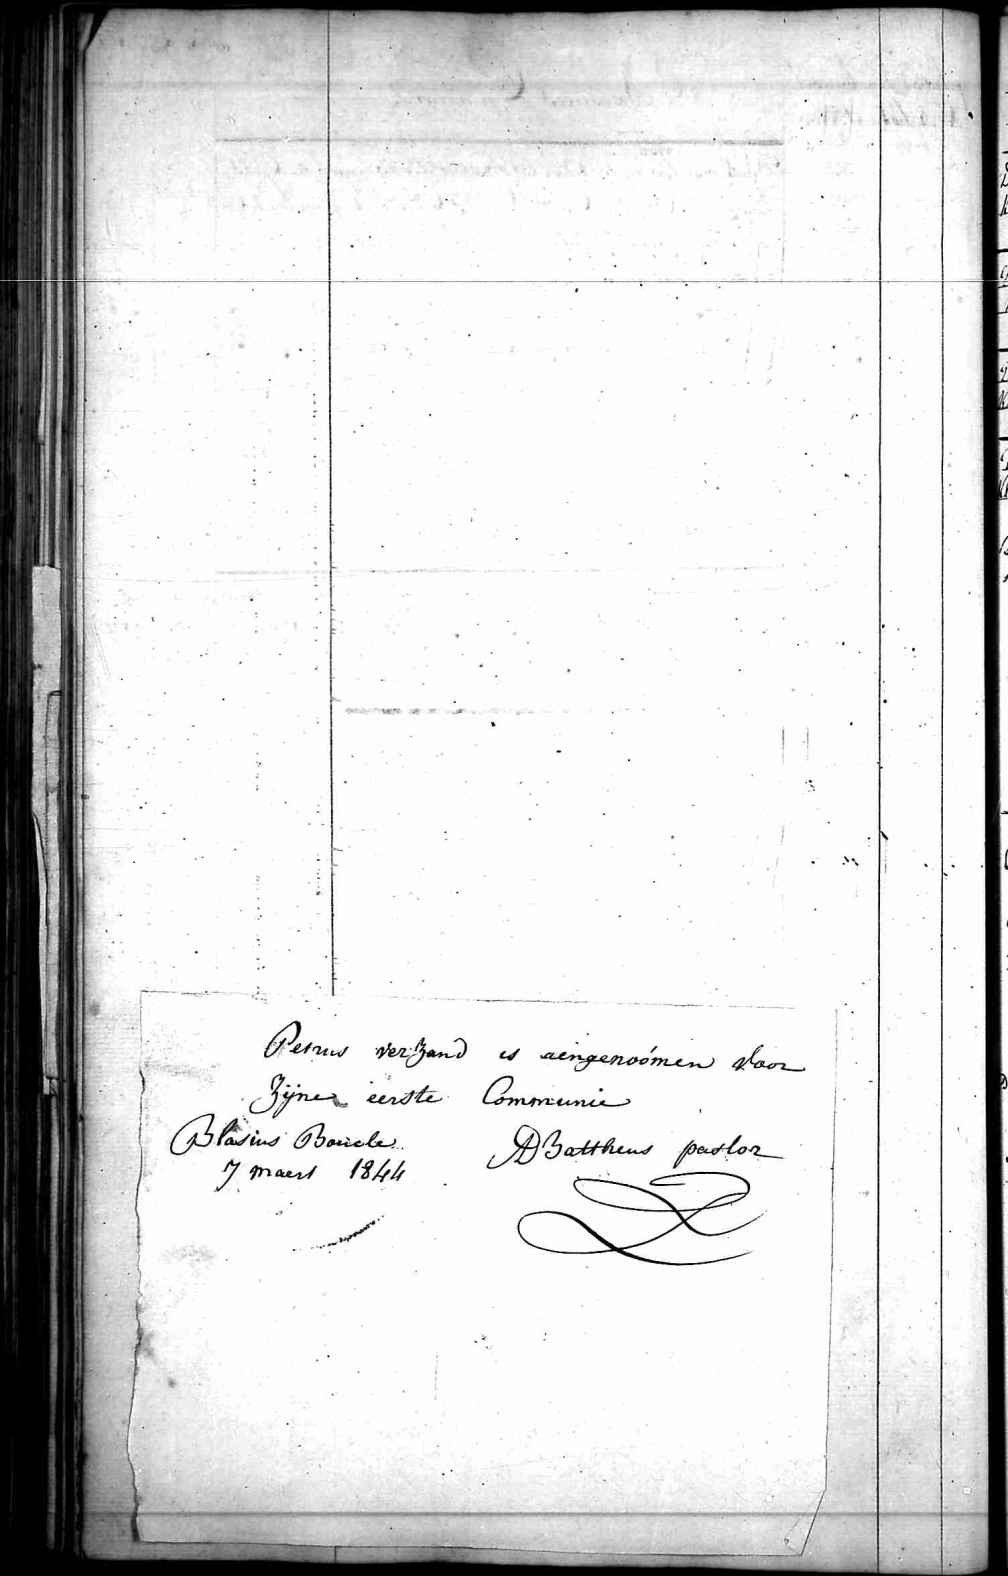 Petrus verzand is aengenoómen voor
Zijne eerste Communie
Blasius Boucle
AD Battheus pastor
7 maert 1844